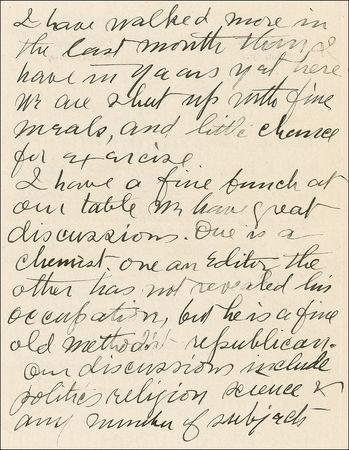 I have walked more in
the last month than I
have in years yet here
we are shut up with fine
meals, and little chance
for exercise
I have a fine bunch at
our table we have great
discussions. One is a
chemist one an Editor the
other has not revealed his
occupation, but he is a fine
old methodist republican.
our discussions include
politics religion science &
any number of subjects